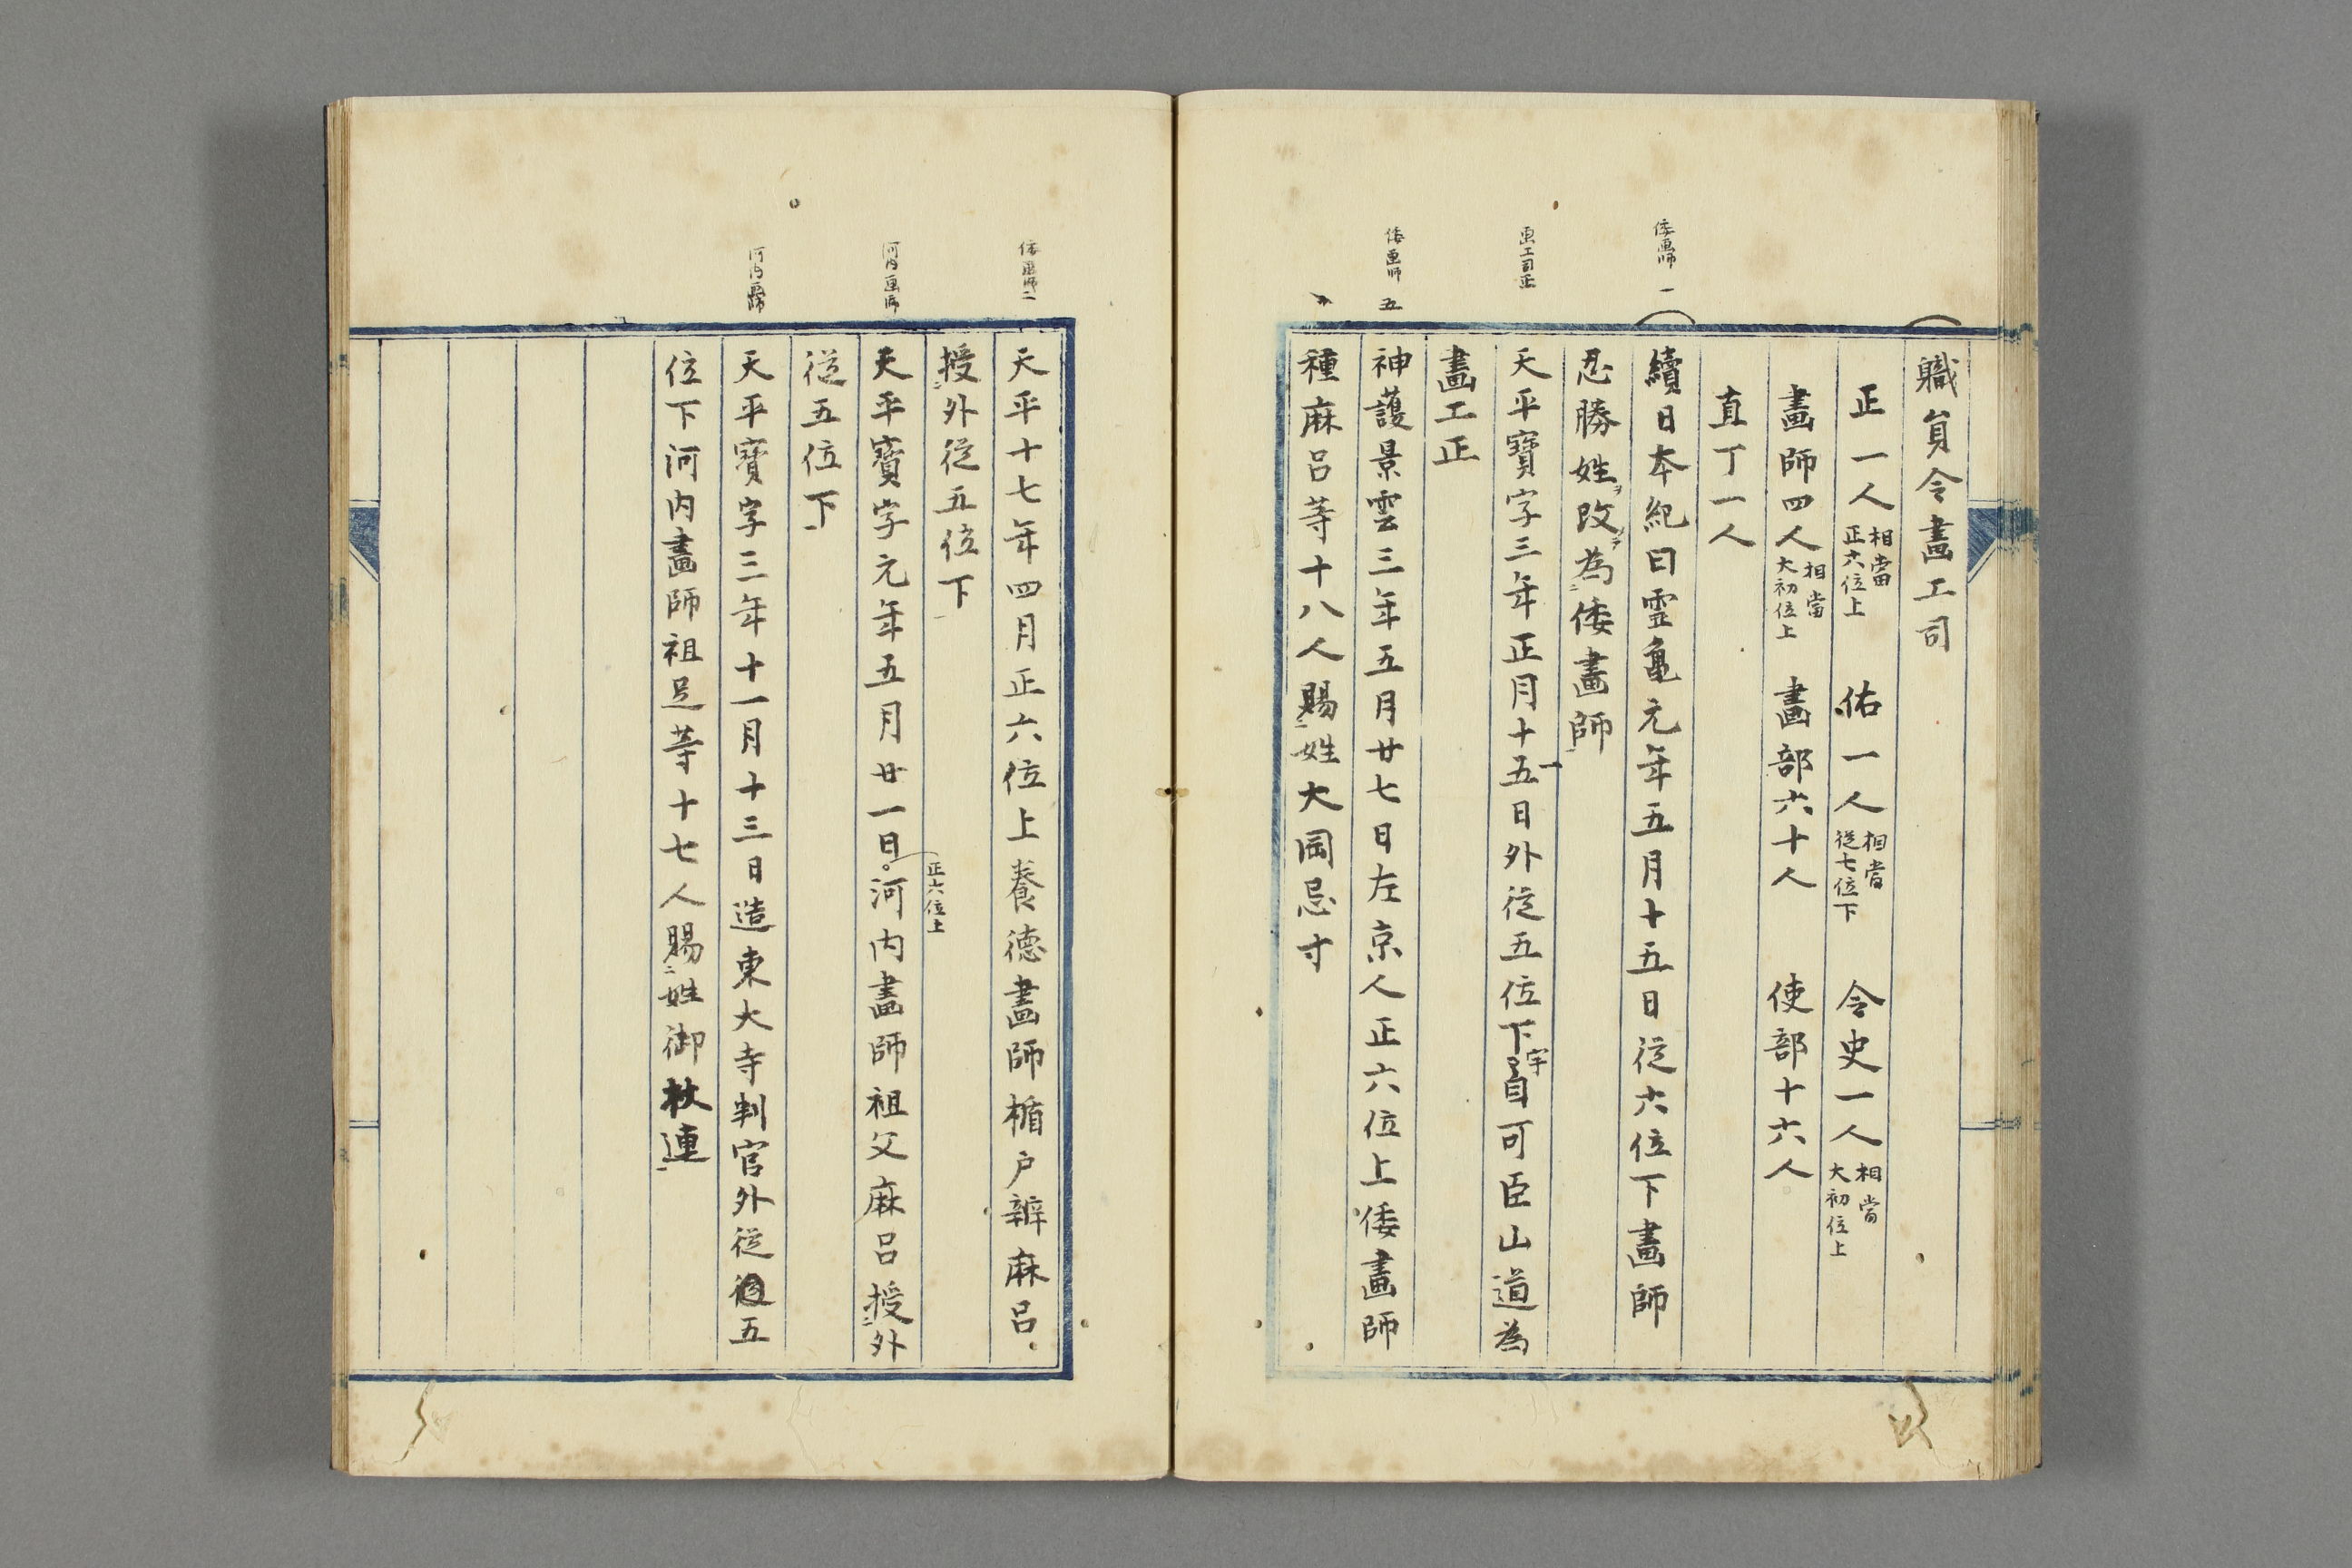 職員令畫工司
正一人 相當正六位上 佑一人 相當從七位下 令史一人 相當大初位上
畫師四人 相當大初位上 畫部六十人 使部十六人
直丁一人
倭画師 一
續日本紀曰霊亀元年五月十五日從六位下畫師
忍勝姓ヲ改テ為ニ倭畫師一
画工司正
天平寶字三年正月十一五日外從五位下宇自可臣山道為
畫工正
倭画師 五
神護景雲三年五月廿七日左京人正六位上倭畫師
種麻呂等十八人賜ニ姓大岡忌寸
倭画師 二
天平十七年四月正六位上養德畫師楯戸辦麻呂
授ニ外從五位下一
河内画師
天平寶字元年五月廿一日。正六位上河内畫師祖父麻呂授ニ外
從五位下一
河内画師
天平寶字三年十一月十三日造東大寺判官外從五
位下河内畫師祖足等十七人賜ニ姓御杖連一